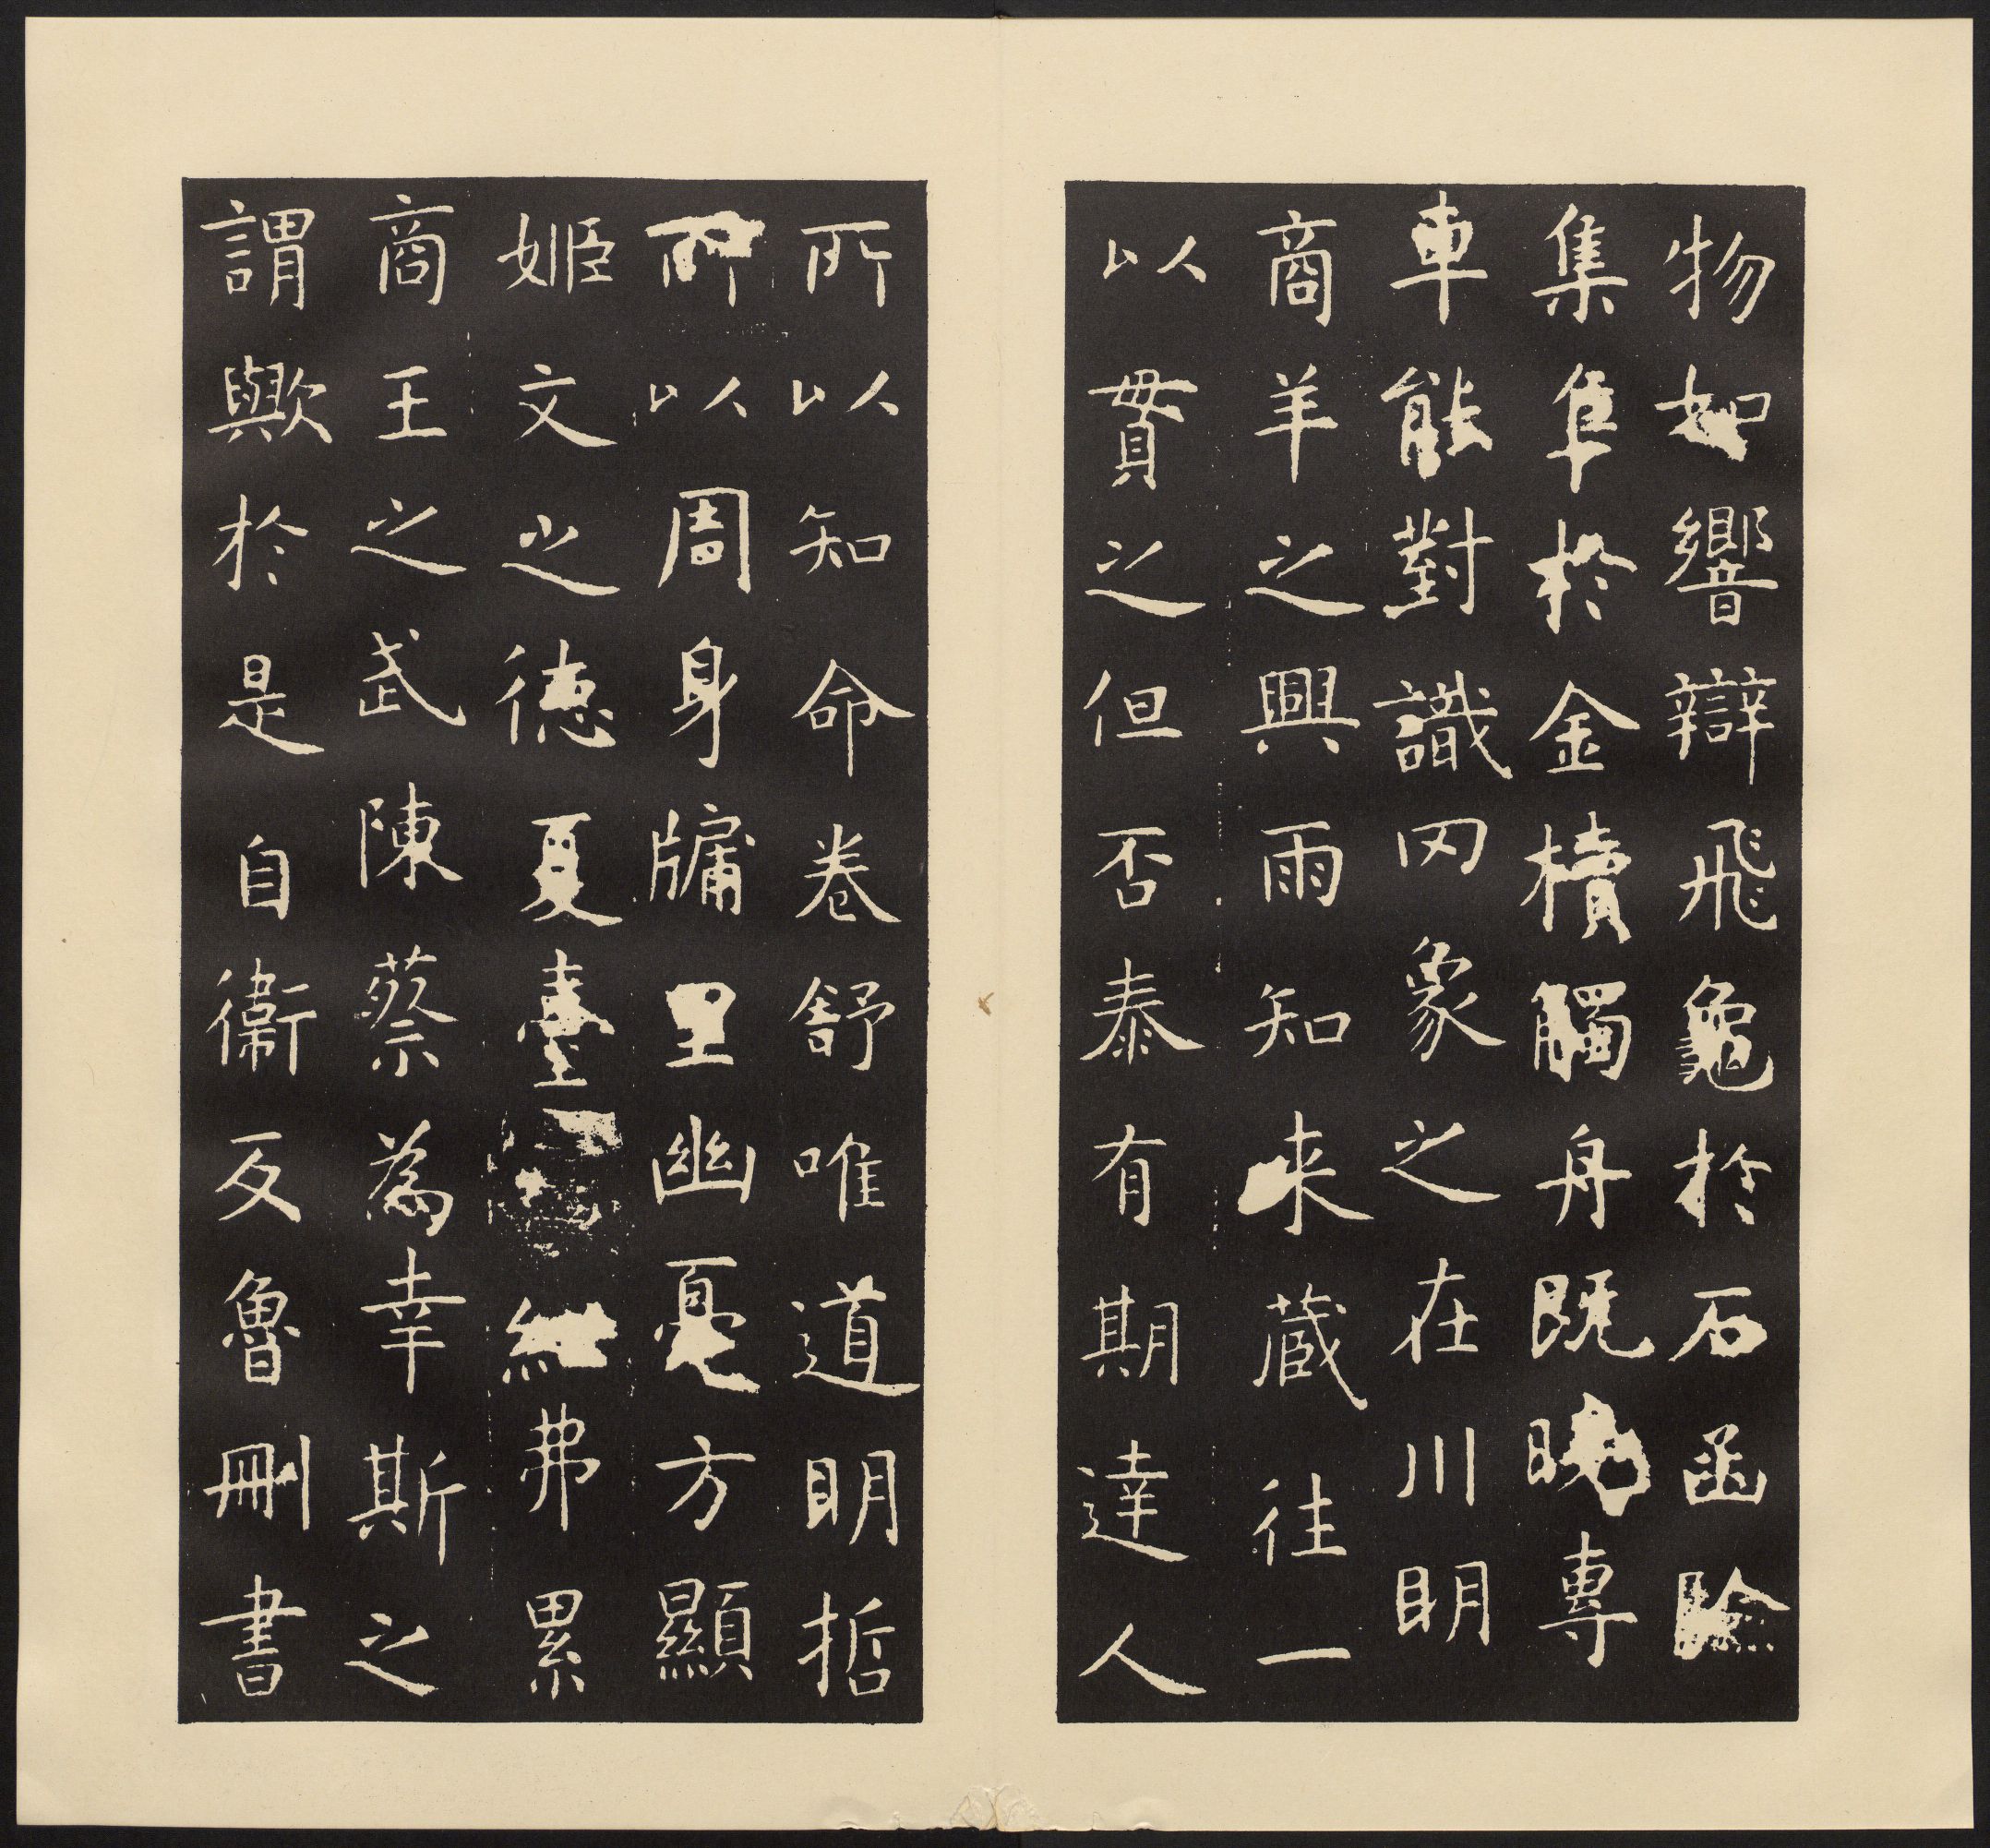 物如響辯飛龜於石函驗
集隼於金櫝觸舟既曉專
車能對識罔象之在川明
商羊之興雨知来藏往一
以貫之但否泰有期達人
所以知命卷舒唯道明哲
所以周身牖里幽憂方顯
姬文之德夏臺弗累
商王之武陳蔡為幸斯之
謂歟於是自衛反魯刪書